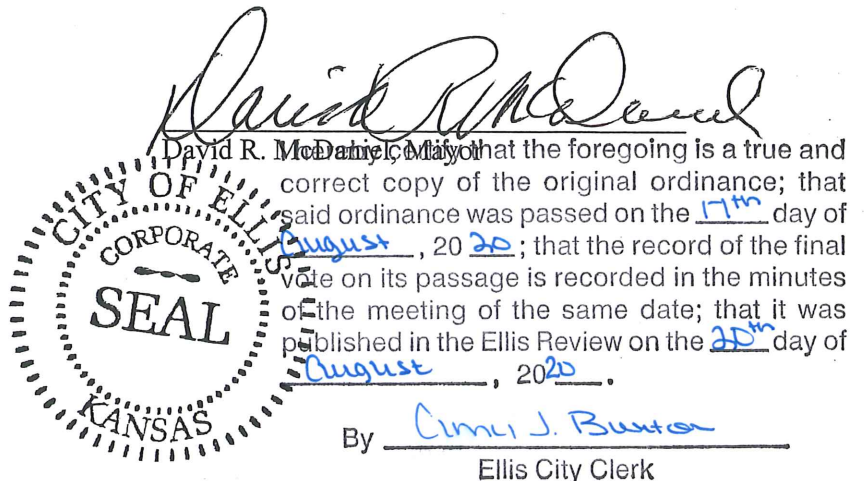 David R. McDaniel
David R. McDaniel, Mayor
I hereby certify that the foregoing is a true and
correct copy of the original ordinance; that
said ordinance was passed on the 17th day of
August, 2020; that the record of the final
vote on its passage is recorded in the minutes
of the meeting of the same date; that it was
published in the Ellis Review on the 20th day of
August, 2020.
By J. Burton
Ellis City Clerk
CITY OF ELLIS
CORPORATE
SEAL
KANSAS